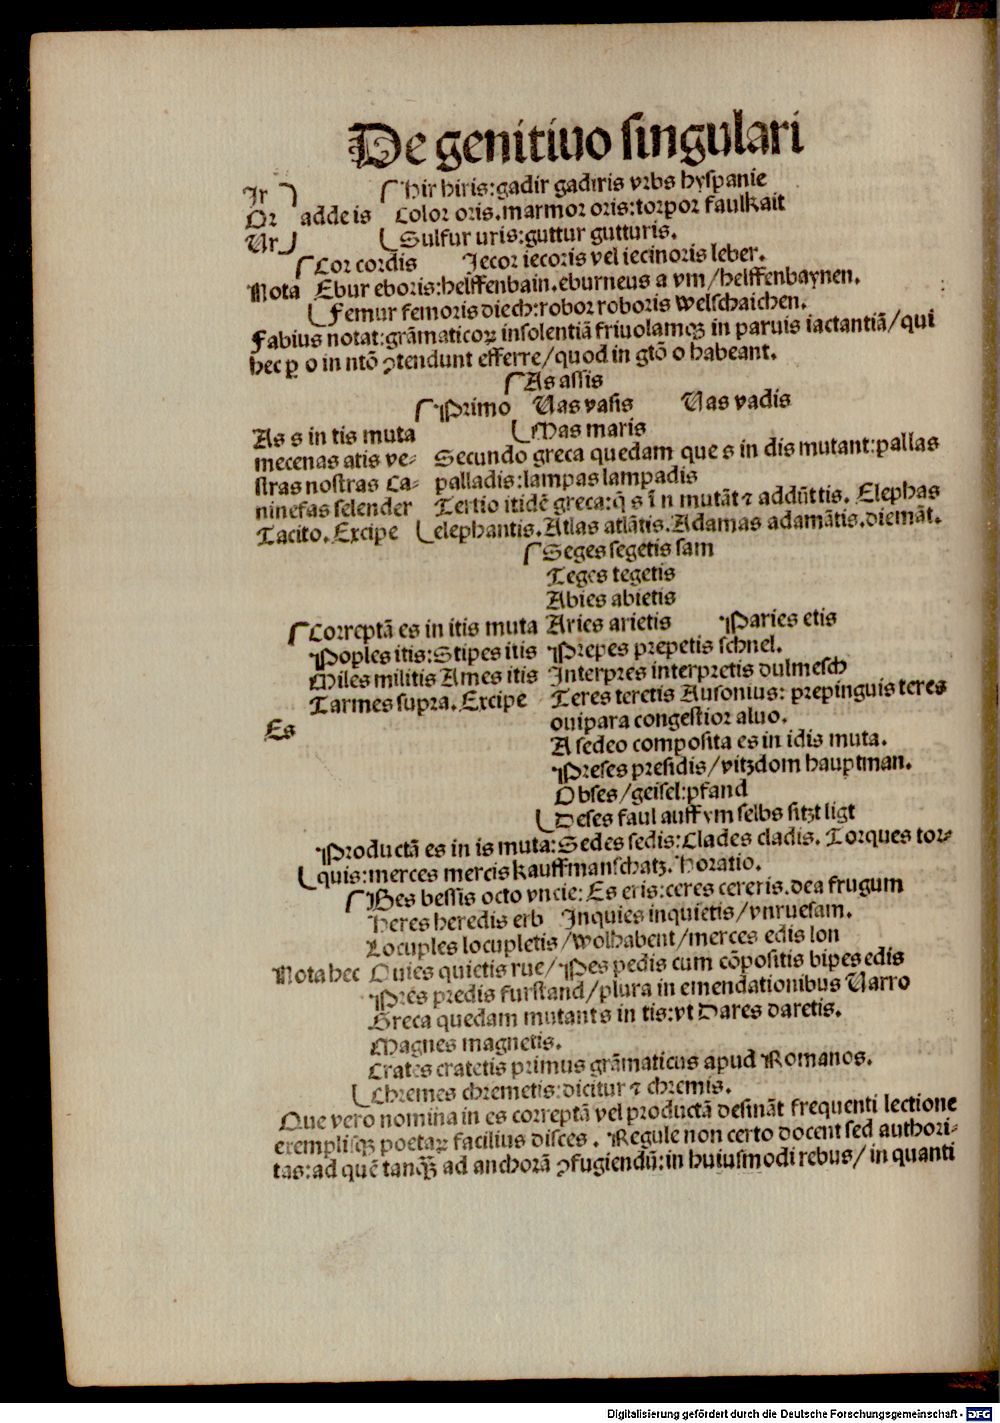 De genitiuo singulari
Ir Hir hiris:gadir gadiris vrbs hyspanie
Or adde is Color oris.marmor oris:torpor faulkait
Ur Sulfur uris:guttur gutturis.
Cor cordis Iecor iecoris vel iecinoris leber.
Nota Ebur eboris:helffenbain.eburneus a vm/helffenbaynen.
Femur femoris diech:robor roboris welschaichen.
Fabius notat:grãmaticoꝝ insolentiã friuolamqꝫ in paruis iactantiã/qui
hec ꝑ o in ntõ ꝯtendunt efferre/quod in gtõ o habeant.
As assis
Primo Uas vasis Uas vadis
As s in tis muta Mas maris
mecenas atis ve- Secundo greca quedam que s in dis mutant:pallas
stras nostras Ca- palladis:lampas lampadis
ninefas selender Tertio itidẽ greca:q̃ s ĩ n mutãt ⁊ addũt tis. Elephas
Tacito.Excipe elephantis.Atlas atlãtis.Adamas adamãtis.diemãt.
Seges segetis sam
Teges tegetis
Abies abietis
Correptã es in itis muta Aries arietis Paries etis
Poples itis:Stipes itis Prepes prepetis schnel.
Miles militis Ames itis Interpres interpretis dulmesch
Tarmes supra.Excipe Teres teretis Ausonius: prepinguis teres
Es ouipara congestior aluo.
A sedeo composita es in idis muta.
Preses presidis/vitzdom hauptman.
Obses/geisel:pfand
Deses faul auff ym selbs sitzt ligt
Productã es in is muta:Sedes sedis:Clades cladis. Torques tor-
quis:merces mercis kauffmanschatz.Horatio.
Bes bessis octo vncie: Es eris:ceres cereris.dea frugum
Heres heredis erb Inquies inquietis/vnruesam.
Locuples locupletis/wolhabent/merces edis lon
Nota hec Quies quietis rue/Pes pedis cum cõpositis bipes edis
Pres predis furstand/plura in emendationibus Uarro
Greca quedam mutant s in tis:vt Dares daretis.
Magnes magnetis.
Crates cratetis primus grãmaticus apud Romanos.
Chremes chremetis:dicitur ⁊ chremis.
Que vero nomina in es correptã vel productã desinãt frequenti lectione
exemplisqꝫ poetaꝝ facilius disces. Regule non certo docent sed authori-
tas:ad quẽ tanqꝫ̃ ad anchorã ꝯfugiendũ:in huiusmodi rebus/in quanti
Digitalisierung gefördert durch die Deutsche Forschungsgemeinschaft - DFG